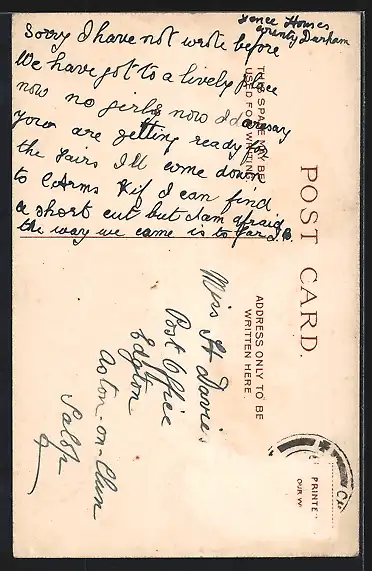 Fence Houses
County Durham
Sorry I have not wrote before
We have got to a lively place
now no girls now I daresay
your are getting ready for
the fairs I'll come down
to CArms if I can find
a short cut but I am afraid
the way we came is to far
THIS SPACE MAY BE
USED FOR WRITING
POST CARD.
ADDRESS ONLY TO BE
WRITTEN HERE.
Miss H Davies
Post Office
Edgton
Aston-on-Clun
Salop
PRINTE
OUR W